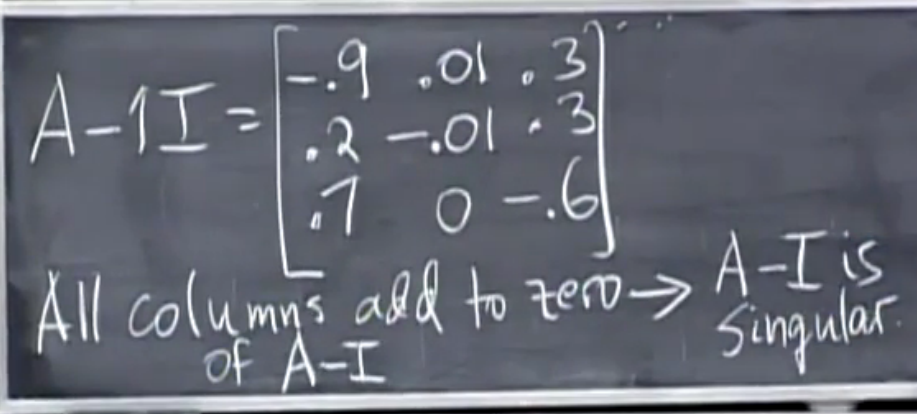 A-1I = [-.9 .01 .3
.2 -.01 .3
.7 0 -.6]
All columns add to zero → A-I is
of A-I singular.